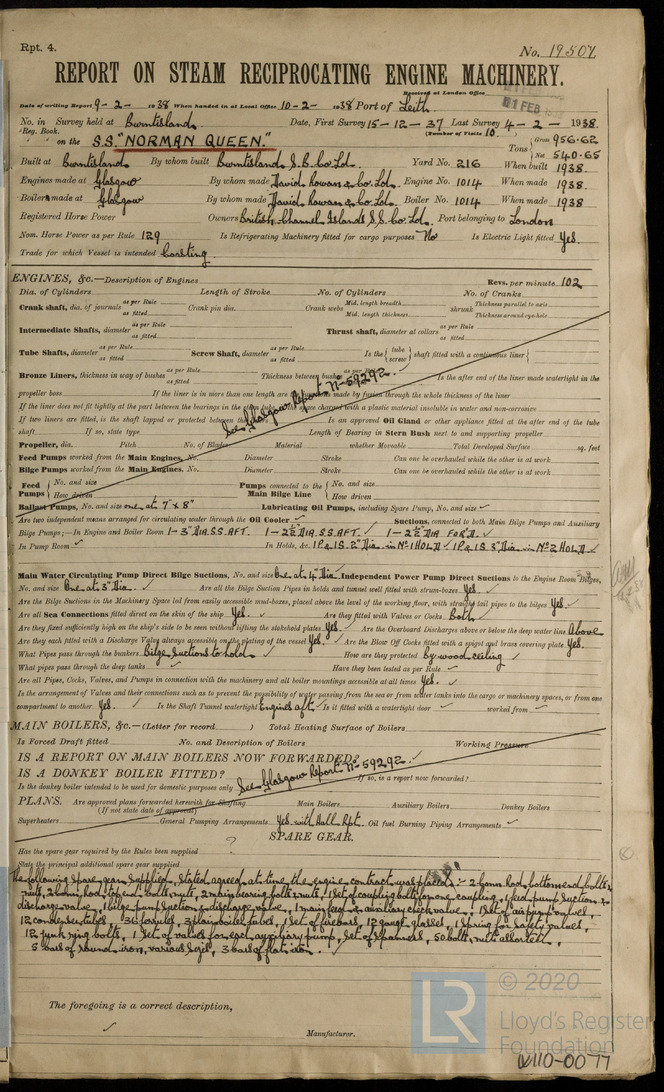 Rpt. 4.
No. 19507
REPORT ON STEAM RECIPROCATING ENGINE MACHINERY.
Received at London Office
Date of writing Report 9-2- 1938 When handed in at Local Office 10-2- 1938 Port of Leith
No. in Survey held at Burntisland Date, First Survey 15-12-37 Last Survey 4-2- 1938.
Reg. Book. (Number of Visits 10.)
on the S.S. "NORMAN QUEEN." Tons Gross 956.62
Net 540.65
Built at Burntisland By whom built Burntisland S.B. Co. Ld. Yard No. 216 When built 1938.
Engines made at Glasgow By whom made David Rowan & Co. Ld. Engine No. 1014 When made 1938.
Boilers made at Glasgow By whom made David Rowan & Co. Ld. Boiler No. 1014 When made 1938
Registered Horse Power Owners British Channel Islands S.S. Co. Ld. Port belonging to London
Nom. Horse Power as per Rule 129 Is Refrigerating Machinery fitted for cargo purposes No Is Electric Light fitted Yes.
Trade for which Vessel is intended Coasting.
ENGINES, &c.—Description of Engines Revs. per minute 102
Dia. of Cylinders Length of Stroke No. of Cylinders No. of Cranks
Crank shaft, dia. of journals as per Rule as fitted Crank pin dia. Crank webs Mid. length breadth Mid. length thickness shrunk Thickness parallel to axis Thickness around eye-hole
Intermediate Shafts, diameter as per Rule as fitted Thrust shaft, diameter at collars as per Rule as fitted
Tube Shafts, diameter as per Rule as fitted Screw Shaft, diameter as per Rule as fitted Is the { tube screw } shaft fitted with a continuous liner {
Bronze Liners, thickness in way of bushes as per Rule as fitted Thickness between bushes as per Rule as fitted Is the after end of the liner made watertight in the
propeller boss If the liner is in more than one length are made by fusion through the whole thickness of the liner
See Glasgow Report No 59292.
If the liner does not fit tightly at the part between the bearings in the charged with a plastic material insoluble in water and non-corrosive
If two liners are fitted, is the shaft lapped or protected between the Is an approved Oil Gland or other appliance fitted at the after end of the tube
shaft If so, state type Length of Bearing in Stern Bush next to and supporting propeller
Propeller, dia. Pitch No. of Blades Material whether Moveable Total Developed Surface sq. feet
Feed Pumps worked from the Main Engines, No. Diameter Stroke Can one be overhauled while the other is at work
Bilge Pumps worked from the Main Engines, No. Diameter Stroke Can one be overhauled while the other is at work
Feed Pumps { No. and size How driven Pumps connected to the Main Bilge Line { No. and size How driven
Ballast Pumps, No. and size one at 7" x 8" Lubricating Oil Pumps, including Spare Pump, No. and size ✓
Are two independent means arranged for circulating water through the Oil Cooler ✓ Suctions, connected to both Main Bilge Pumps and Auxiliary
Bilge Pumps;—In Engine and Boiler Room 1-3" DIA. S.S. AFT. 1-2½" DIA S.S. AFT. ✓ 1-2½" DIA FOR'D. ✓
In Pump Room ✓ In Holds, &c. 1P. & 1S. 2" Dia. in No 1 HOLD ✓ 1P. & 1S. 3" Dia. in No 2 HOLD. ✓
Main Water Circulating Pump Direct Bilge Suctions, No. and size One at 4" Dia. Independent Power Pump Direct Suctions to the Engine Room Bilges,
No. and size One at 3" Dia. ✓ Are all the Bilge Suction Pipes in holds and tunnel well fitted with strum-boxes Yes. ✓
Are the Bilge Suctions in the Machinery Space led from easily accessible mud-boxes, placed above the level of the working floor, with straight tail pipes to the bilges Yes ✓
Are all Sea Connections fitted direct on the skin of the ship Yes. ✓ Are they fitted with Valves or Cocks Both ✓
Are they fixed sufficiently high on the ship's side to be seen without lifting the stokehold plates Yes ✓ Are the Overboard Discharges above or below the deep water line Above
Are they each fitted with a Discharge Valve always accessible on the plating of the vessel Yes ✓ Are the Blow Off Cocks fitted with a spigot and brass covering plate Yes.
What Pipes pass through the bunkers Bilge Suctions to holds ✓ How are they protected By wood ceiling ✓
What pipes pass through the deep tanks ✓ Have they been tested as per Rule ✓
Are all Pipes, Cocks, Valves, and Pumps in connection with the machinery and all boiler mountings accessible at all times Yes. ✓
Is the arrangement of Valves and their connections such as to prevent the possibility of water passing from the sea or from water tanks into the cargo or machinery spaces, or from one
compartment to another Yes. ✓ Is the Shaft Tunnel watertight Engines aft. ✓ Is it fitted with a watertight door ✓ worked from ✓
MAIN BOILERS, &c.—(Letter for record ) Total Heating Surface of Boilers
Is Forced Draft fitted No. and Description of Boilers Working Pressure
IS A REPORT ON MAIN BOILERS NOW FORWARDED?
See Glasgow Report No 59292. ✓
IS A DONKEY BOILER FITTED? If so, is a report now forwarded?
Is the donkey boiler intended to be used for domestic purposes only
PLANS. Are approved plans forwarded herewith for Shafting Main Boilers Auxiliary Boilers Donkey Boilers
(If not state date of approval)
Superheaters General Pumping Arrangements Yes with Hull Rpt. Oil fuel Burning Piping Arrangements ✓
SPARE GEAR.
Has the spare gear required by the Rules been supplied ?
State the principal additional spare gear supplied
The following spare gear supplied, stated agreed at time the engine contract was placed :- 2 conn. rod bottom end bolts &
nuts, 2 conn. rod top end bolts & nuts, 2 main bearing bolts & nuts, 1 set of coupling bolts for one coupling, 1 feed pump suction &
discharge valve, 1 bilge pump suction & discharge valve, 1 main feed & auxiliary check valve, 1 set of air pump valves,
12 condenser tubes, 36 ferrules, 3 plain boiler tubes, 1 set of firebars, 12 gauge glasses, 1 spring for safety valves,
12 junk ring bolts, 1 set of valves for each auxiliary pump, set of spanners, 50 bolts & nuts assorted,
5 bars of round iron, various sizes, 3 bars of flat iron. ✓
The foregoing is a correct description,
Manufacturer.
© 2020
LR
Lloyd's Register
Foundation
W110-0077